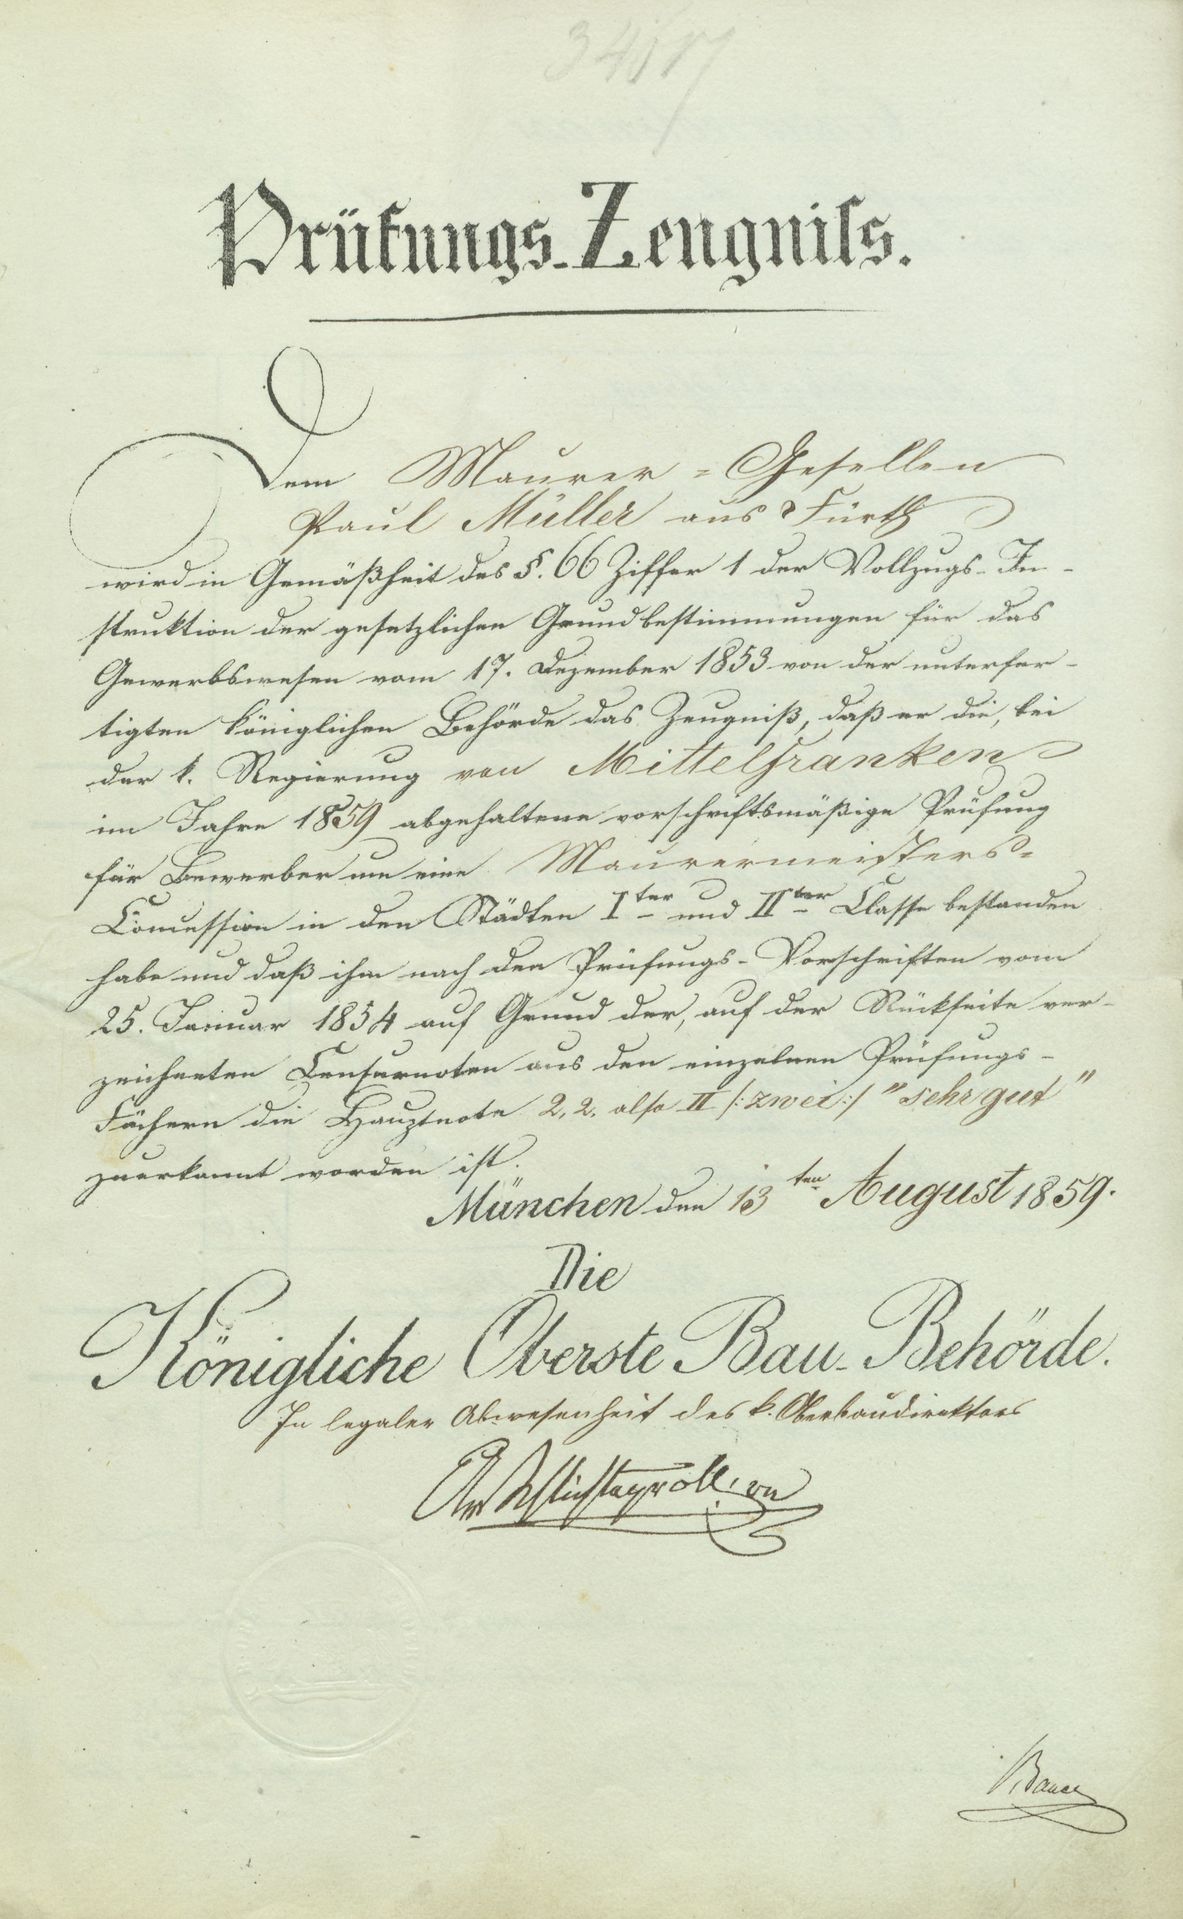 Prüfungs-Zeugniss.
Dem Maurer=Gesellen
Paul Müller aus Fürth
wird in Gemäßheit des §. 66 Ziffer 1 der Vollzugs-In-
struktion der gesetzlichen Grundbestimmungen für das
Gewerbswesen vom 17. Dezember 1853 von der unterfer-
tigten königlichen Behörde das Zeugniß, daß er die, bei
der k. Regierung von Mittelfranken
im Jahre 1859 abgehaltene vorschriftsmäßige Prüfung
für Bewerber um eine Maurermeisters=
Concession in den Städten Iter und IIter Classe bestanden
habe und daß ihm nach den Prüfungs-Vorschriften vom
25. Januar 1854 auf Grund der, auf der Rückseite ver-
zeichneten Censurnoten aus den einzelnen Prüfungs-
Fächern die Hauptnote 2,2. also II /:zwei:/ "sehr gut"
zuerkannt worden ist.
München den 13ten August 1859.
Die
Königliche Oberste Bau-Behörde.
In legaler Abwesenheit des k. Oberbaudirektors